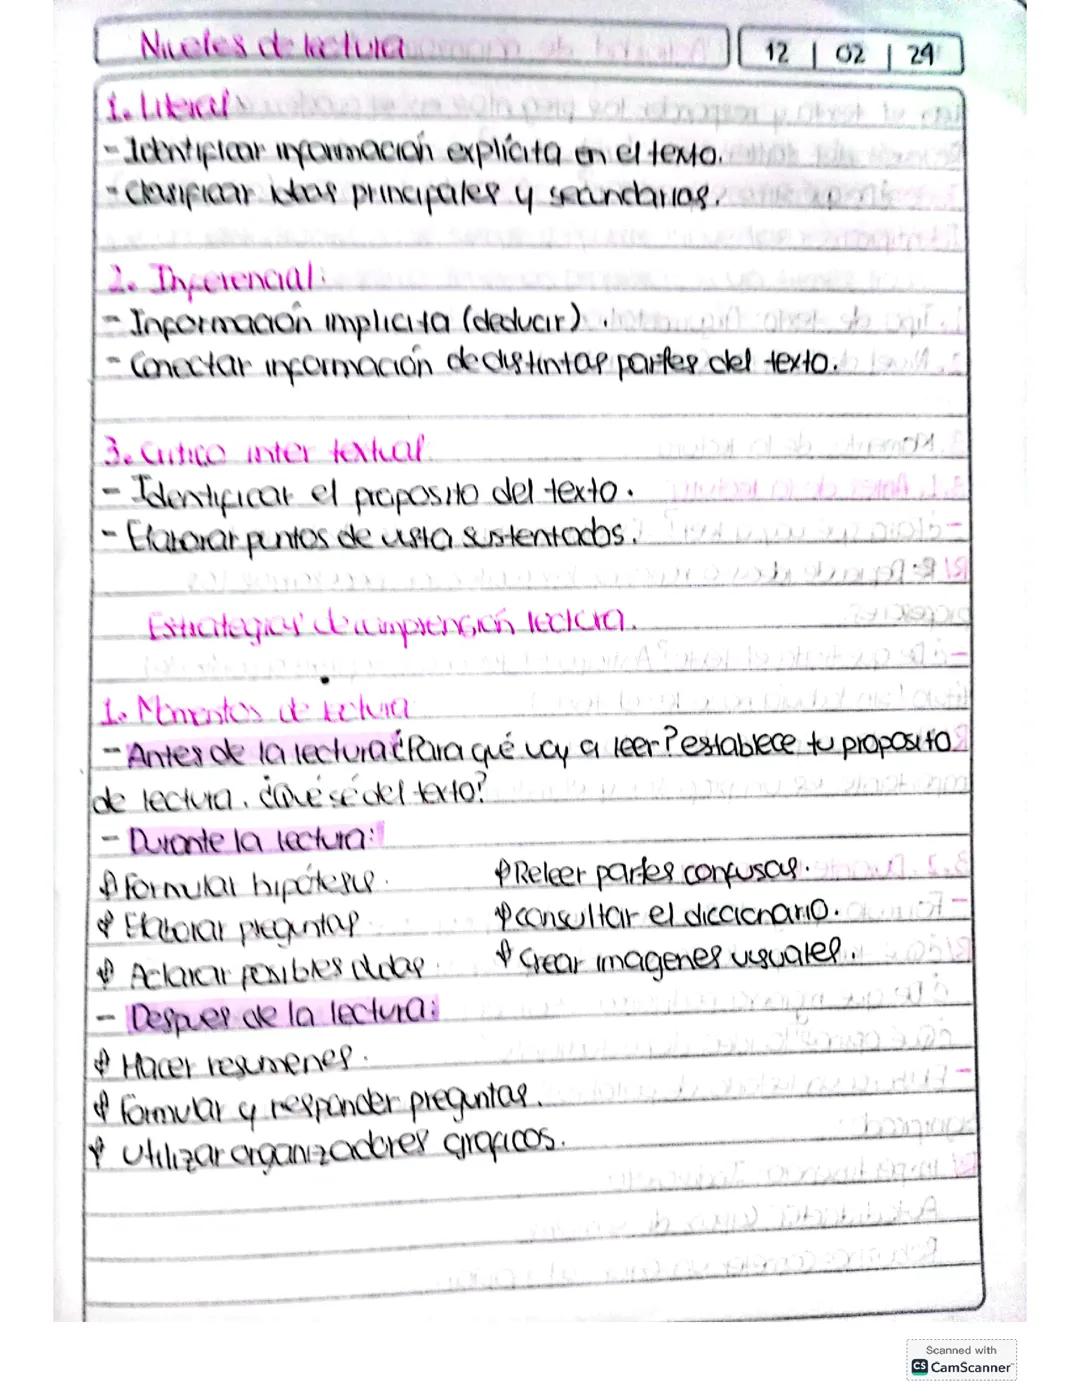 Niveles de lectura
12 | 02 | 24
1. Literal
- Identificar información explícita en el texto.
- Clasificar ideas principales y secundarias.
2. Inferencial:
- Información implicita (deducir).
- Conectar información de distintas partes del texto.
3. Critico inter textual
- Identificar el proposito del texto.
- Elaborar puntos de vista sustentados.
Estrategias de comprensión lectura.
1. Momentos de lectura
- Antes de la lectura ¿Para qué voy a leer? establece tu proposito
de lectura. ¿Qué sé del texto?
- Durante la lectura:
Formular hipótesis.
Releer partes confusas.
Elaborar preguntas
consultar el diccionario.
Aclarar posibles dudas.
Crear imagenes visuales.
- Despues de la lectura:
Hacer resumenes.
Formular y responder preguntas.
Utilizar organizadores graficos.
Scanned with
CS CamScanner